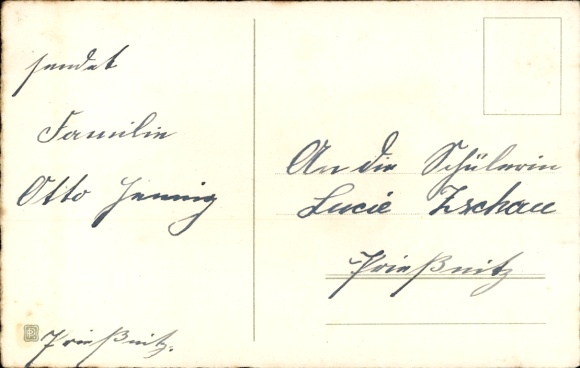 sendet
Familie
Otto Hennig
Prießnitz.
An die Schülerin
Lucie Zschau
Prießnitz